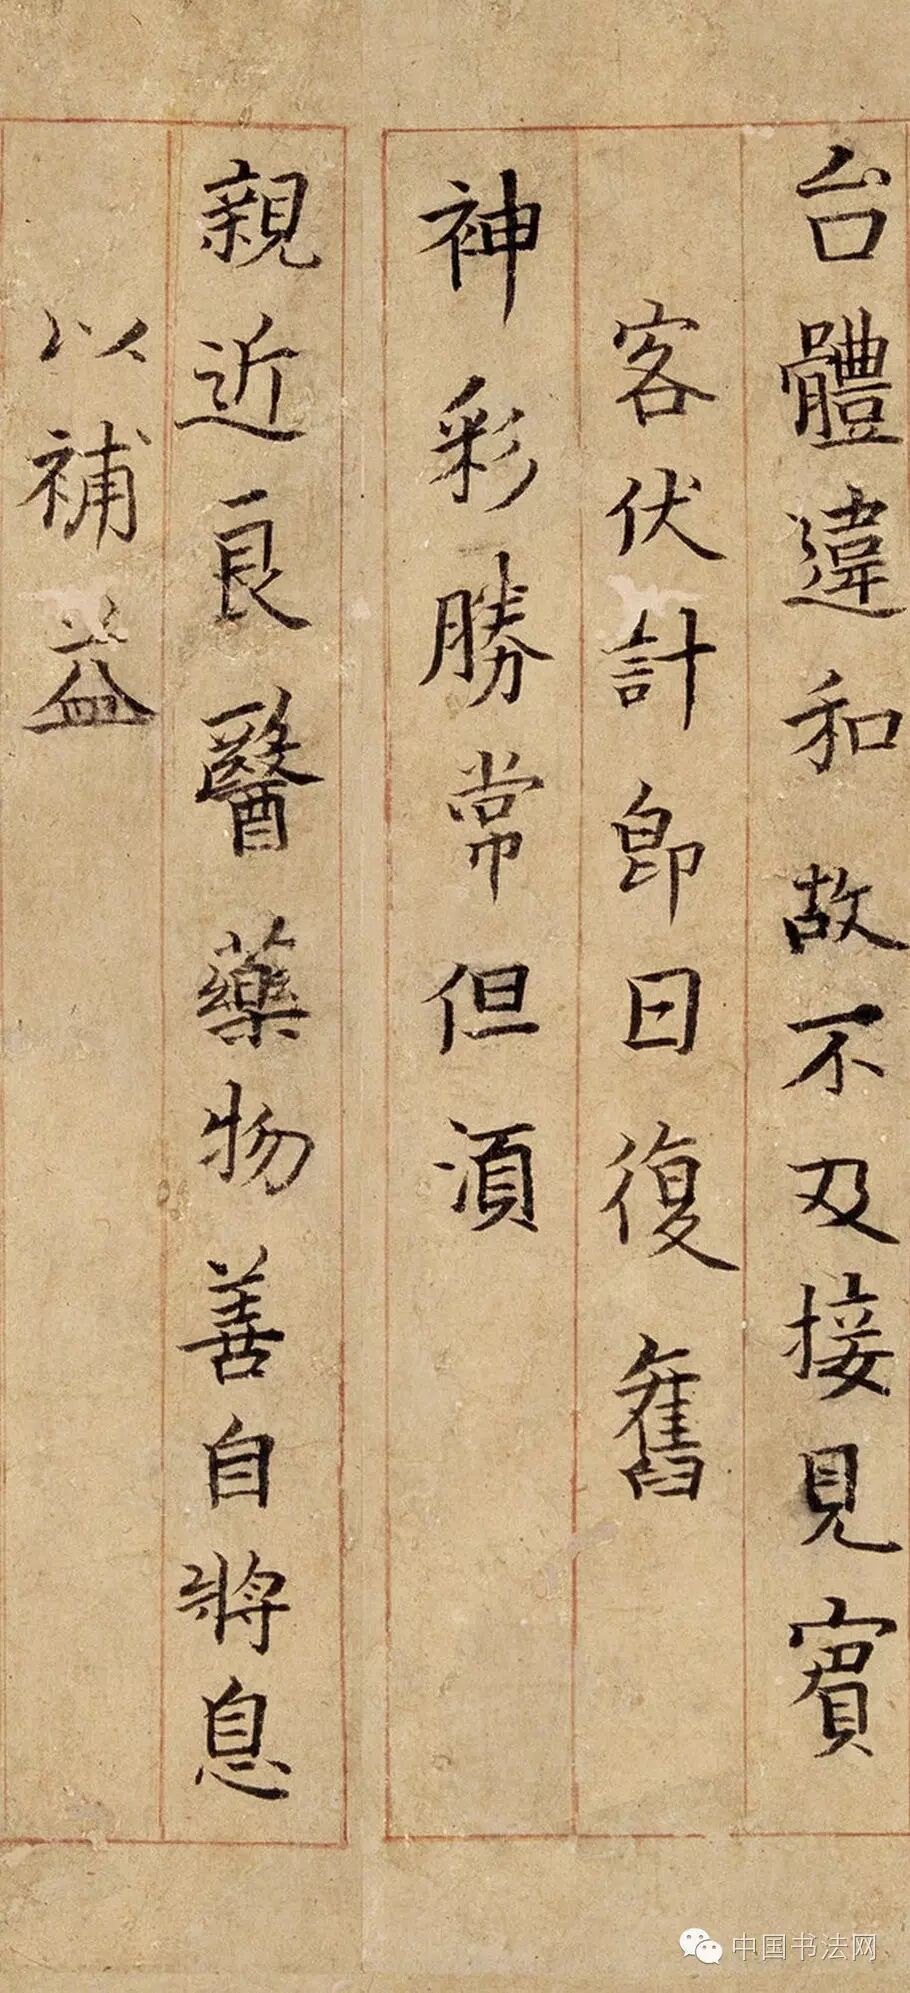 台體違和故不及接見賓
客伏計即日復舊
神彩勝常但須
親近良醫藥物善自將息
以補益
中国书法网